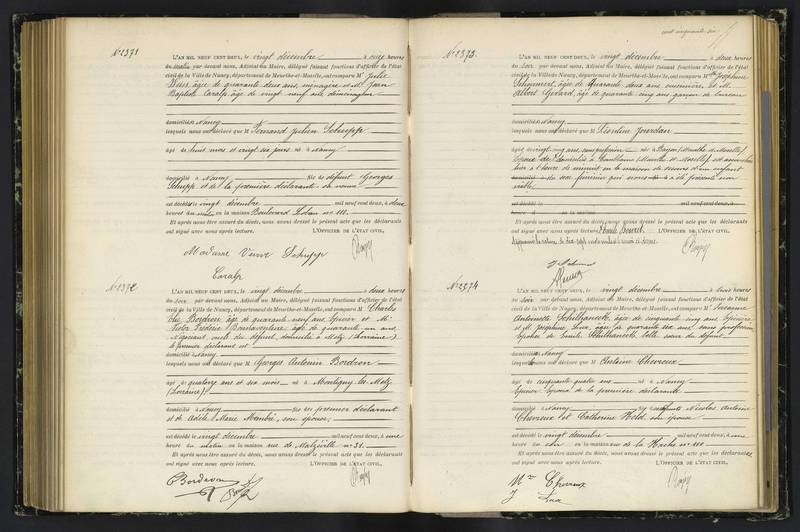 N° 2371
L'AN MIL NEUF CENT DEUX, le vingt décembre à onze heures
du matin par devant nous, Adjoint au Maire, délégué faisant fonctions d'officier de l'état
civil de la Ville de Nancy, département de Meurthe-et-Moselle, ont comparu Mme Julie
âgée de quarante deux ans, ménagère et Mr Jean
Baptiste Caralp âgé de vingt neuf ans,
domiciliés à Nancy
lesquels nous ont déclaré que M Fernand Julien Schupp
âgé de huit mois et vingt six jours né à Nancy
domicilié à Nancy fils de défunt Georges
Schupp et de la première déclarante sa veuve
est décédé le vingt décembre mil neuf cent deux, à deux
heures du matin en la maison Boulevard Lobau n° 111.
Et après nous être assuré du décès, nous avons dressé le présent acte que les déclarants
ont signé avec nous après lecture. L'OFFICIER DE L'ÉTAT CIVIL,
Madame Veuve Schupp
Caralp
N° 2372
L'AN MIL NEUF CENT DEUX, le vingt décembre à deux heures
du soir par devant nous, Adjoint au Maire, délégué faisant fonctions d'officier de l'état
civil de la Ville de Nancy, département de Meurthe-et-Moselle, ont comparu M Charles
Bordron âgé de quarante neuf ans, et Mr
Victor Frédéric Bonaventure, âgé de quarante un ans,
Négociant, oncle du défunt, domicilié à Metz (Lorraine)
le premier déclarant est
domicilié à Nancy
lesquels nous ont déclaré que M Georges Antonin Bordron
âgé de quatorze ans et six mois né à Montigny-les-Metz
(Lorraine)
domicilié à Nancy fils de premier déclarant
et de Adèle Marie son épouse,
est décédé le vingt décembre mil neuf cent deux, à une
heure du matin en la maison rue de Malzéville n° 31.
Et après nous être assuré du décès, nous avons dressé le présent acte que les déclarants
ont signé avec nous après lecture. L'OFFICIER DE L'ÉTAT CIVIL,
Bordron
cent cinquante six
N° 2373
L'AN MIL NEUF CENT DEUX, le vingt décembre à deux heures
du soir par devant nous, Adjoint au Maire, délégué faisant fonctions d'officier de l'état
civil de la Ville de Nancy, département de Meurthe-et-Moselle, ont comparu Mme Joséphine
âgée de quarante deux ans et M.
Albert Girard, âgé de quarante cinq ans garçon de bureau
domiciliés à Nancy
lesquels nous ont déclaré que M Léontine Jourdan
âgée vingt cinq ans, sans profession née à Bayon (Meurthe et Moselle)
épouse de domiciliés à (Meurthe et Moselle) est accouchée
hier à l'heure de minuit en la maison de secours d'un enfant
du sexe féminin qui nous a été présenté non
viable
est décédé le mil neuf cent deux, à
heure d en la maison
Et après nous être assuré du décès, nous avons dressé le présent acte que les déclarants
ont signé avec nous après lecture. L'OFFICIER DE L'ÉTAT CIVIL,
N° 2374
L'AN MIL NEUF CENT DEUX, le vingt décembre à trois heures
du soir par devant nous, Adjoint au Maire, délégué faisant fonctions d'officier de l'état
civil de la Ville de Nancy, département de Meurthe-et-Moselle, ont comparu Me Suzanne
Antoinette âgée de cinquante cinq ans
et M. Joséphine Lux, âgée de quarante six ans sans profession
épouse de Emile belle sœur du défunt
domiciliés à Nancy
lesquels nous ont déclaré que M Antoine Chevreux
âgé de cinquante quatre ans né à Nancy
époux de la première déclarante
domicilié à Nancy fils de défunts Nicolas Antoine
Chevreux et Catherine Held, son épouse
est décédé le vingt décembre mil neuf cent deux, à une
heure du soir en la maison rue de la Hache n° 111
Et après nous être assuré du décès, nous avons dressé le présent acte que les déclarants
ont signé avec nous après lecture. L'OFFICIER DE L'ÉTAT CIVIL,
Me Chevreux
J Lux